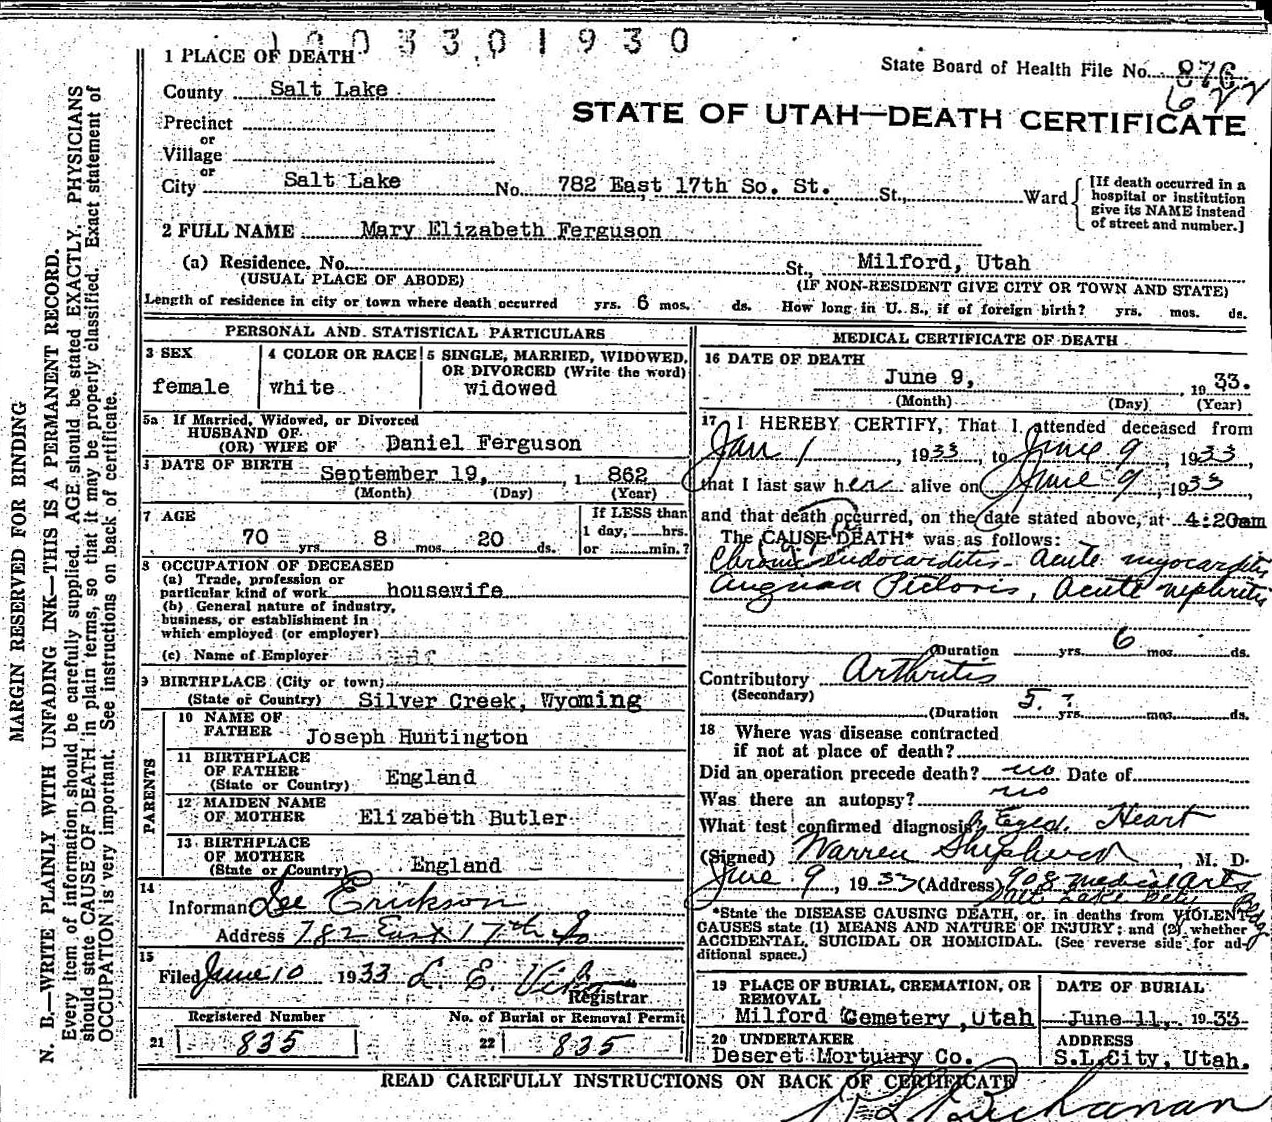 1003301930
1 PLACE OF DEATH
State Board of Health File No. 876
622
County Salt Lake
STATE OF UTAH—DEATH CERTIFICATE
Precinct
or
Village
or
City Salt Lake No. 782 East 17th So. St. St., Ward
[If death occurred in a hospital or institution give its NAME instead of street and number.]
2 FULL NAME Mary Elizabeth Ferguson
(a) Residence. No. St., Milford, Utah
(USUAL PLACE OF ABODE) (IF NON-RESIDENT GIVE CITY OR TOWN AND STATE)
Length of residence in city or town where death occurred yrs. 6 mos. ds. How long in U. S., if of foreign birth? yrs. mos. ds.
PERSONAL AND STATISTICAL PARTICULARS
3 SEX
female
4 COLOR OR RACE
white
5 SINGLE, MARRIED, WIDOWED,
OR DIVORCED (Write the word)
widowed
5a If Married, Widowed, or Divorced
HUSBAND OF
(OR) WIFE OF Daniel Ferguson
DATE OF BIRTH September 19, 1862
(Month) (Day) (Year)
7 AGE
70 yrs. 8 mos. 20 ds.
If LESS than
1 day, hrs.
or min.?
8 OCCUPATION OF DECEASED
(a) Trade, profession or
particular kind of work housewife
(b) General nature of industry,
business, or establishment in
which employed (or employer)
(c) Name of Employer
9 BIRTHPLACE (City or town)
(State or Country) Silver Creek, Wyoming
PARENTS
10 NAME OF
FATHER Joseph Huntington
11 BIRTHPLACE
OF FATHER England
(State or Country)
12 MAIDEN NAME
OF MOTHER Elizabeth Butler
13 BIRTHPLACE
OF MOTHER
(State or Country) England
14
Informan Lee Erickson
Address 782 East 17th So
15
Filed June 10 1933 L. E.
Registrar
Registered Number No. of Burial or Removal Permit
21 835 22 835
MEDICAL CERTIFICATE OF DEATH
16 DATE OF DEATH
June 9, 1933.
(Month) (Day) (Year)
17 I HEREBY CERTIFY, That I attended deceased from
Jan 1, 1933, to June 9, 1933,
that I last saw her alive on June 9, 1933
and that death occurred, on the date stated above, at 4:20am
The CAUSE DEATH* was as follows:
Chronic endocarditis - acute myocarditis
Anguna Pictoris, acute nephritis
(Duration yrs. 6 mos. ds.
Contributory Arthritis
(Secondary)
(Duration 5 ? yrs. mos. ds.
18 Where was disease contracted
if not at place of death?
Did an operation precede death? no Date of
Was there an autopsy? no
What test confirmed diagnosis Heart
(Signed) Warren Shepherd, M. D.
June 9, 1933 (Address) 908 Medical Arts Bldg
Salt Lake City
*State the DISEASE CAUSING DEATH, or, in deaths from VIOLENT
CAUSES state (1) MEANS AND NATURE OF INJURY; and (2) whether
ACCIDENTAL, SUICIDAL OR HOMICIDAL. (See reverse side for ad-
ditional space.)
19 PLACE OF BURIAL, CREMATION, OR
REMOVAL
Milford Cemetery, Utah
DATE OF BURIAL
June 11, 1933
20 UNDERTAKER
Deseret Mortuary Co.
ADDRESS
S.L.City, Utah.
READ CAREFULLY INSTRUCTIONS ON BACK OF CERTIFICATE
Buchanan
MARGIN RESERVED FOR BINDING
N. B.—WRITE PLAINLY WITH UNFADING INK—THIS IS A PERMANENT RECORD.
Every item of information should be carefully supplied. AGE should be stated EXACTLY. PHYSICIANS
should state CAUSE OF DEATH in plain terms, so that it may be properly classified. Exact statement of
OCCUPATION is very important. See instructions on back of certificate.